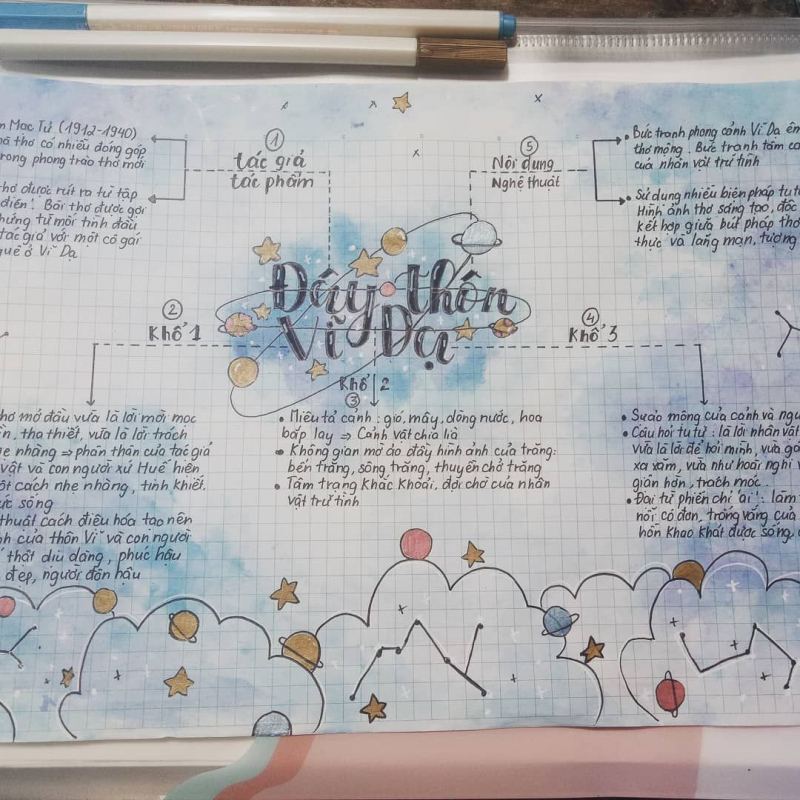 ①
tác giả
tác phẩm
n Mạc Tử (1912-1940)
hà thơ có nhiều đóng góp
rong phong trào thơ mới
thơ được rút ra từ tập
điên". Bài thơ được gợi
hứng từ mối tình đầu
tác giả với một cô gái
quê ở Vĩ Dạ
⑤
Nội dung
Nghệ thuật
Bức tranh phong cảnh Vĩ Dạ ên
thơ mộng. Bức tranh tâm cả
của nhân vật trữ tình
Sử dụng nhiều biện pháp tu từ
Hình ảnh thơ sáng tạo, độc
kết hợp giữa bút pháp thơ
thực và lãng mạn, tượng
Đây thôn
Vĩ Dạ
②
Khổ 1
thơ mở đầu vừa là lời mời mọc
ần, tha thiết, vừa là lời trách
nhẹ nhàng ⇒ phân thân của tác giả
vật và con người xứ Huế hiện
một cách nhẹ nhàng, tinh khiết.
ức sống
thuật cách điệu hóa tạo nên
nh của thôn Vĩ và con người
thật dịu dàng, phúc hậu
đẹp, người đôn hậu
Khổ 2
③
• Miêu tả cảnh: gió, mây, dòng nước, hoa
bắp lay ⇒ Cảnh vật chia lìa
• Không gian mờ ảo đầy hình ảnh của trăng:
bến trăng, sông trăng, thuyền chở trăng
• Tâm trạng khắc khoải, đợi chờ của nhân
vật trữ tình
④
Khổ 3
• Sự ảo mộng của cảnh và ngư
• Câu hỏi tu từ: là lời nhân vật
vừa là lời để hỏi mình, vừa gở
xa xăm, vừa như hoài nghi v
giận hờn, trách móc.
• Đại từ phiến chỉ "ai": làm
nỗi cô đơn, trống vắng của
hồn khao khát được sống,